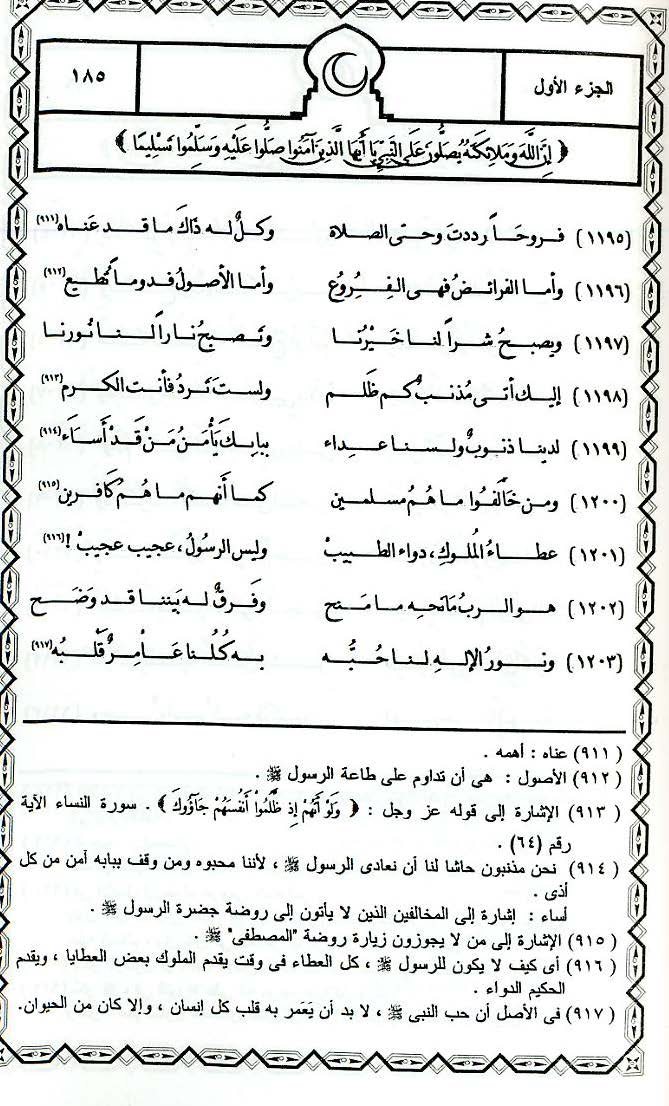 الجزء الأول
١٨٥
﴿ إِنَّ اللَّهَ وَمَلائِكَتَهُ يُصَلُّونَ عَلَى النَّبِيِّ يَا أَيُّهَا الَّذِينَ آمَنُوا صَلُّوا عَلَيْهِ وَسَلِّمُوا تَسْلِيمًا ﴾
(١١٩٥) فروحَاً رددتَ وحتى الصلاة وكلٌ له ذَاكَ ما قد عَناه (٩١١)
(١١٩٦) وأما الفرائضُ فهى الفِرُوعُ وأما الأصولُ فدوماً تُطيع (٩١٢)
(١١٩٧) ويصبحُ شراً لنا خَيْرُنَا وتصبحُ ناراً لنا نُورنا
(١١٩٨) إليك أتى مُذنبٌ كم ظَلم ولستَ تَردُ فأنت الكرم (٩١٣)
(١١٩٩) لدينا ذنوبٌ ولسنا عِداء ببابِكَ يَأْمَنُ مَنْ قَدْ أَسَاءَ (٩١٤)
(١٢٠٠) ومن خَالَفُوا ما هُمُ مسلمين كما أنهم ما هُمُ كَافرين (٩١٥)
(١٢٠١) عطاءُ المُلوكِ، دواء الطبيبْ وليس الرسُولُ، عجيب عجيبْ ! (٩١٦)
(١٢٠٢) هو الربُ مَانحِه ما منح وفَرقٌ له بَيننا قد وَضَح
(١٢٠٣) ونورُ الإلهِ لنا حُبُّه به كُلُنا عَامِرٌ قَلْبُه (٩١٧)
(٩١١) عناه : أهمه .
(٩١٢) الأصول : هى أن تداوم على طاعة الرسول ﷺ .
(٩١٣) الإشارة إلى قوله عز وجل : ﴿ وَلَوْ أَنَّهُمْ إِذ ظَّلَمُوا أَنفُسَهُمْ جَآؤُوكَ ﴾ . سورة النساء الآية
رقم (٦٤) .
(٩١٤) نحن مذنبون حاشا لنا أن نعادى الرسول ﷺ ، لأننا محبوه ومن وقف ببابه آمن من كل
أذى .
أساء : إشارة إلى المخالفين الذين لا يأتون إلى روضة حضرة الرسول ﷺ .
(٩١٥) الإشارة إلى من لا يجوزون زيارة روضة "المصطفى" ﷺ .
(٩١٦) أى كيف لا يكون للرسول ﷺ ، كل العطاء فى وقت يقدم الملوك بعض العطايا ، ويقدم
الحكيم الدواء .
(٩١٧) فى الأصل أن حب النبى ﷺ ، لا بد أن يَعَمر به قلب كل إنسان ، وإلا كان من الحيوان.